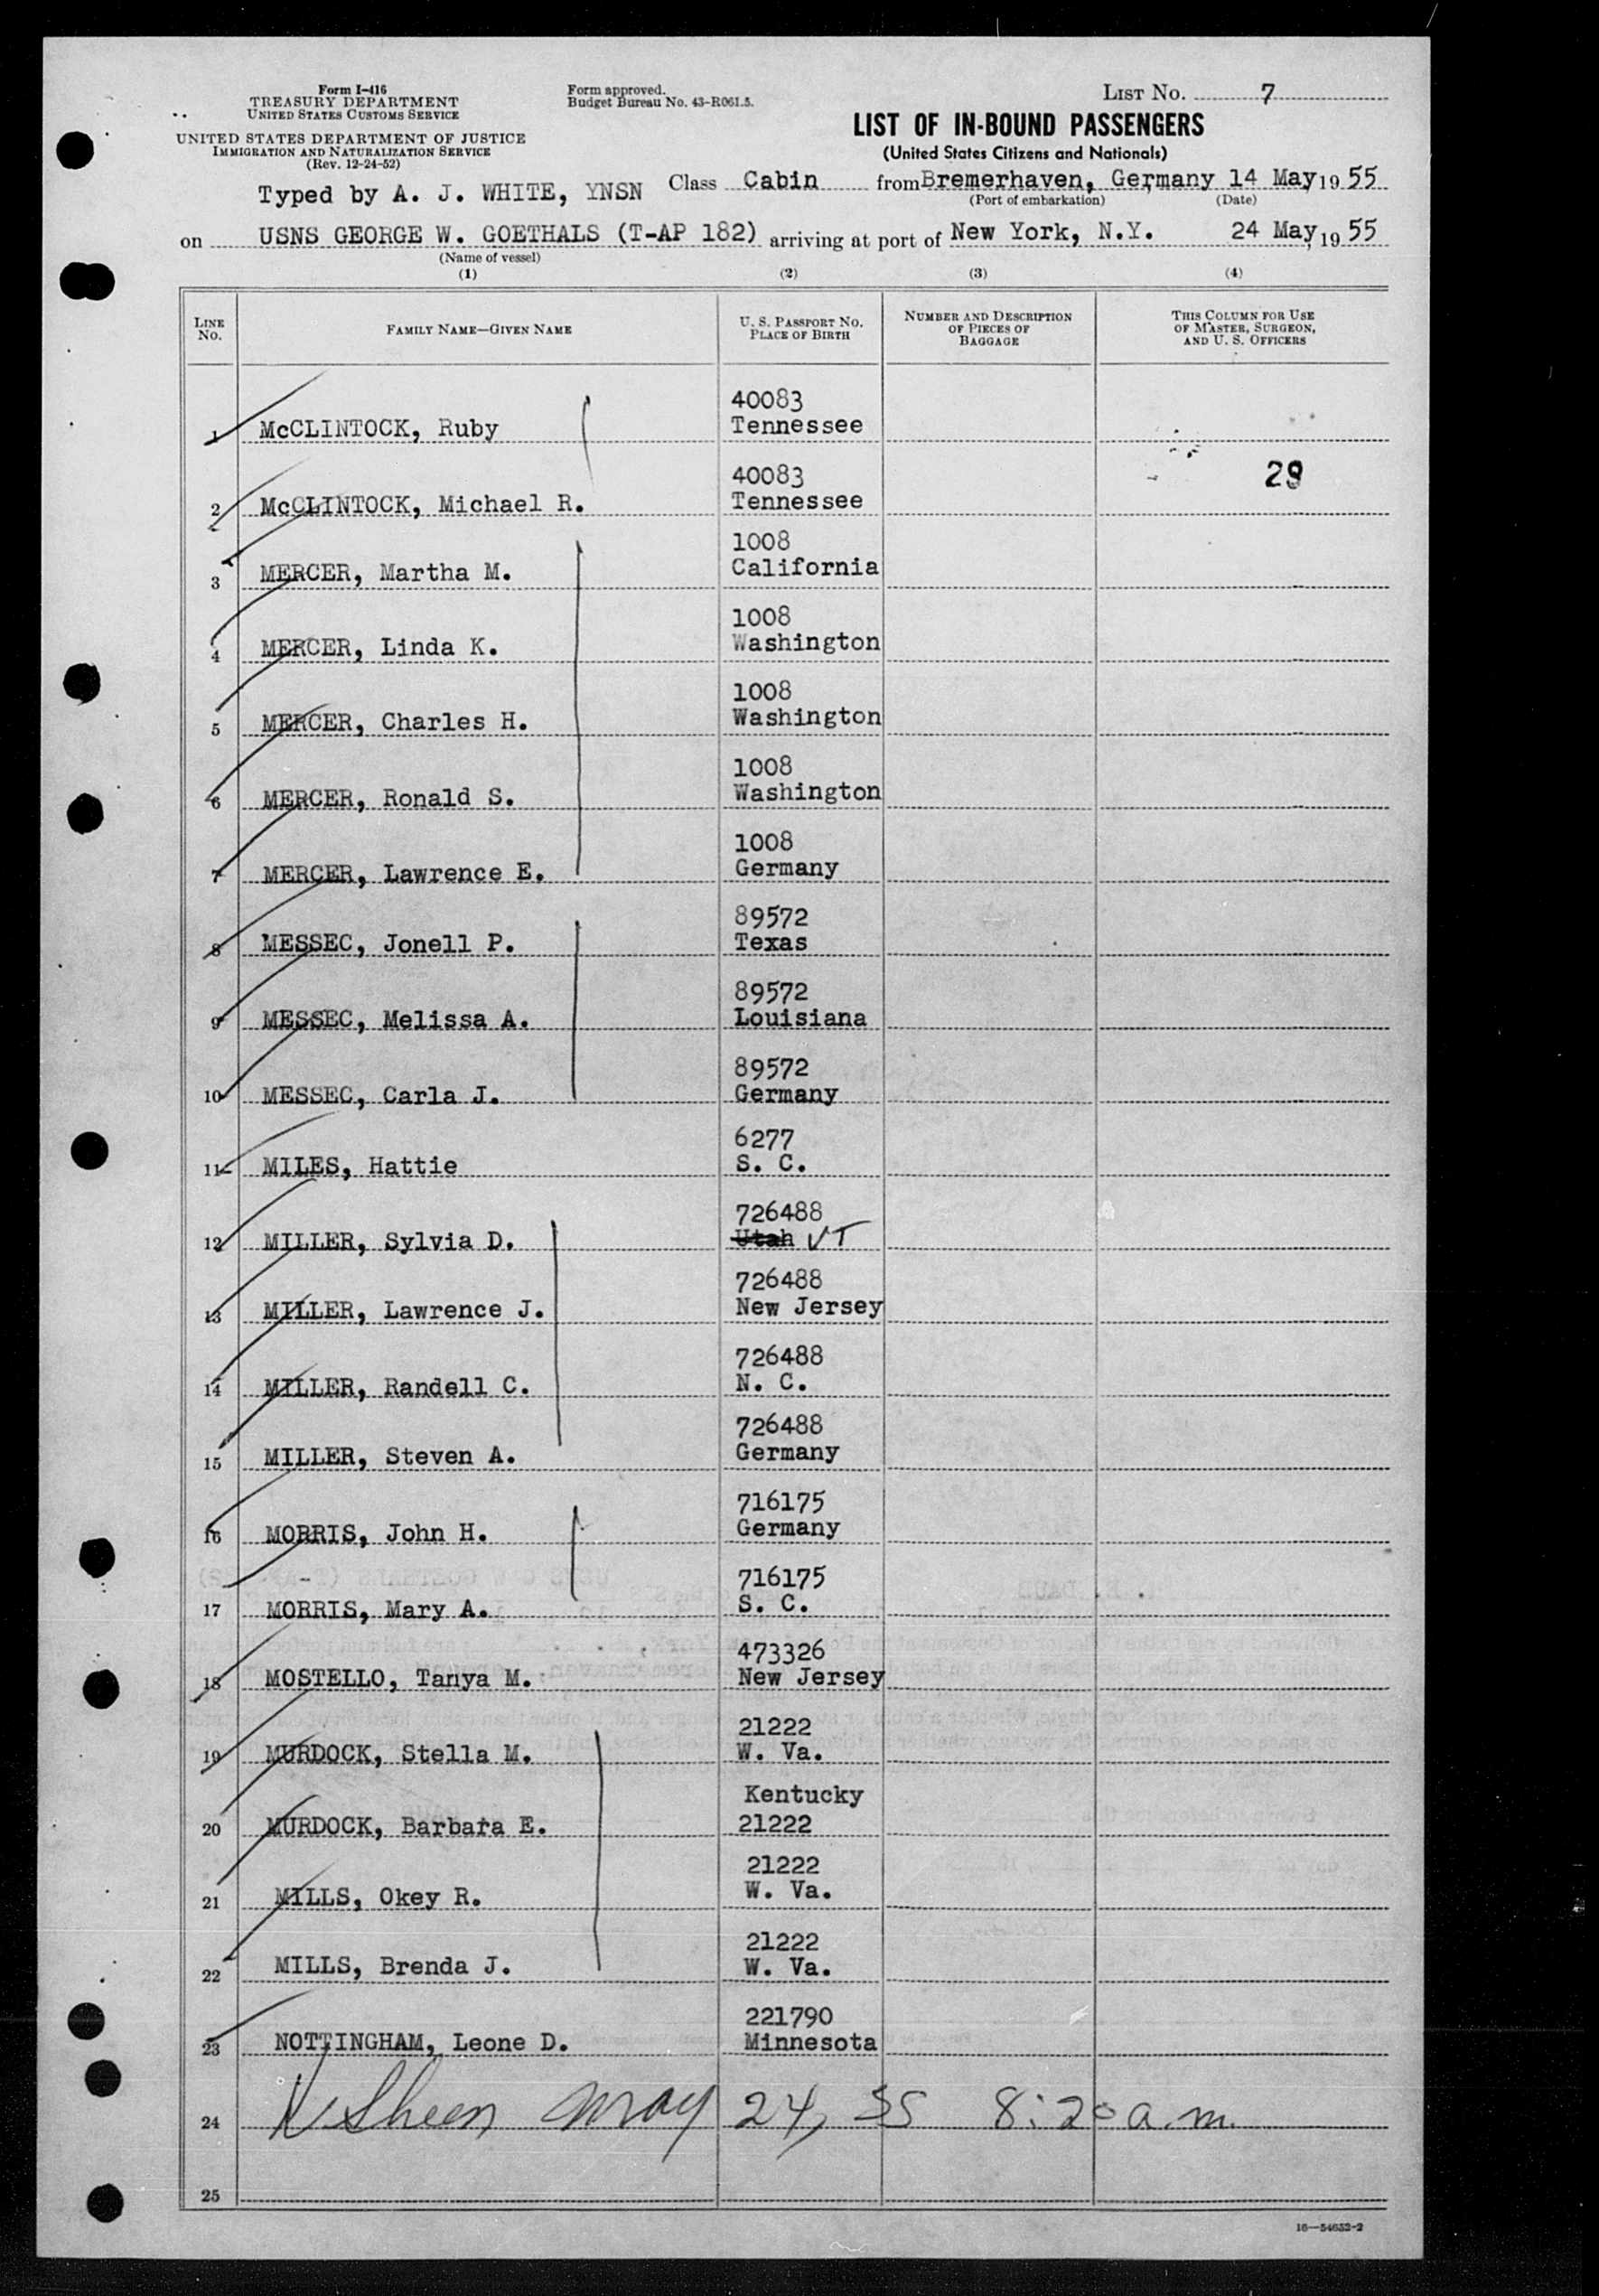 Form I-416
TREASURY DEPARTMENT
UNITED STATES CUSTOMS SERVICE
UNITED STATES DEPARTMENT OF JUSTICE
IMMIGRATION AND NATURALIZATION SERVICE
(Rev. 12-24-52)
Form approved.
Budget Bureau No. 43-R061.5.
LIST No. 7
LIST OF IN-BOUND PASSENGERS
(United States Citizens and Nationals)
Typed by A. J. WHITE, YNSN Class Cabin from Bremerhaven, Germany 14 May, 19 55
(Port of embarkation) (Date)
on USNS GEORGE W. GOETHALS (T-AP 182) arriving at port of New York, N.Y. 24 May, 19 55
(Name of vessel)
(1) (2) (3) (4)
LINE No. FAMILY NAME—GIVEN NAME U. S. PASSPORT NO. PLACE OF BIRTH NUMBER AND DESCRIPTION OF PIECES OF BAGGAGE THIS COLUMN FOR USE OF MASTER, SURGEON, AND U. S. OFFICERS
40083
1 McCLINTOCK, Ruby Tennessee
40083 29
2 McCLINTOCK, Michael R. Tennessee
1008
3 MERCER, Martha M. California
1008
4 MERCER, Linda K. Washington
1008
5 MERCER, Charles H. Washington
1008
6 MERCER, Ronald S. Washington
1008
7 MERCER, Lawrence E. Germany
89572
8 MESSEC, Jonell P. Texas
89572
9 MESSEC, Melissa A. Louisiana
89572
10 MESSEC, Carla J. Germany
6277
11 MILES, Hattie S. C.
726488
12 MILLER, Sylvia D. Utah VT
726488
13 MILLER, Lawrence J. New Jersey
726488
14 MILLER, Randell C. N. C.
726488
15 MILLER, Steven A. Germany
716175
16 MORRIS, John H. Germany
716175
17 MORRIS, Mary A. S. C.
473326
18 MOSTELLO, Tanya M. New Jersey
21222
19 MURDOCK, Stella M. W. Va.
Kentucky
20 MURDOCK, Barbara E. 21222
21222
21 MILLS, Okey R. W. Va.
21222
22 MILLS, Brenda J. W. Va.
221790
23 NOTTINGHAM, Leone D. Minnesota
24 Sheen May 24, 55 8:20 a.m.
25
16—54652-2